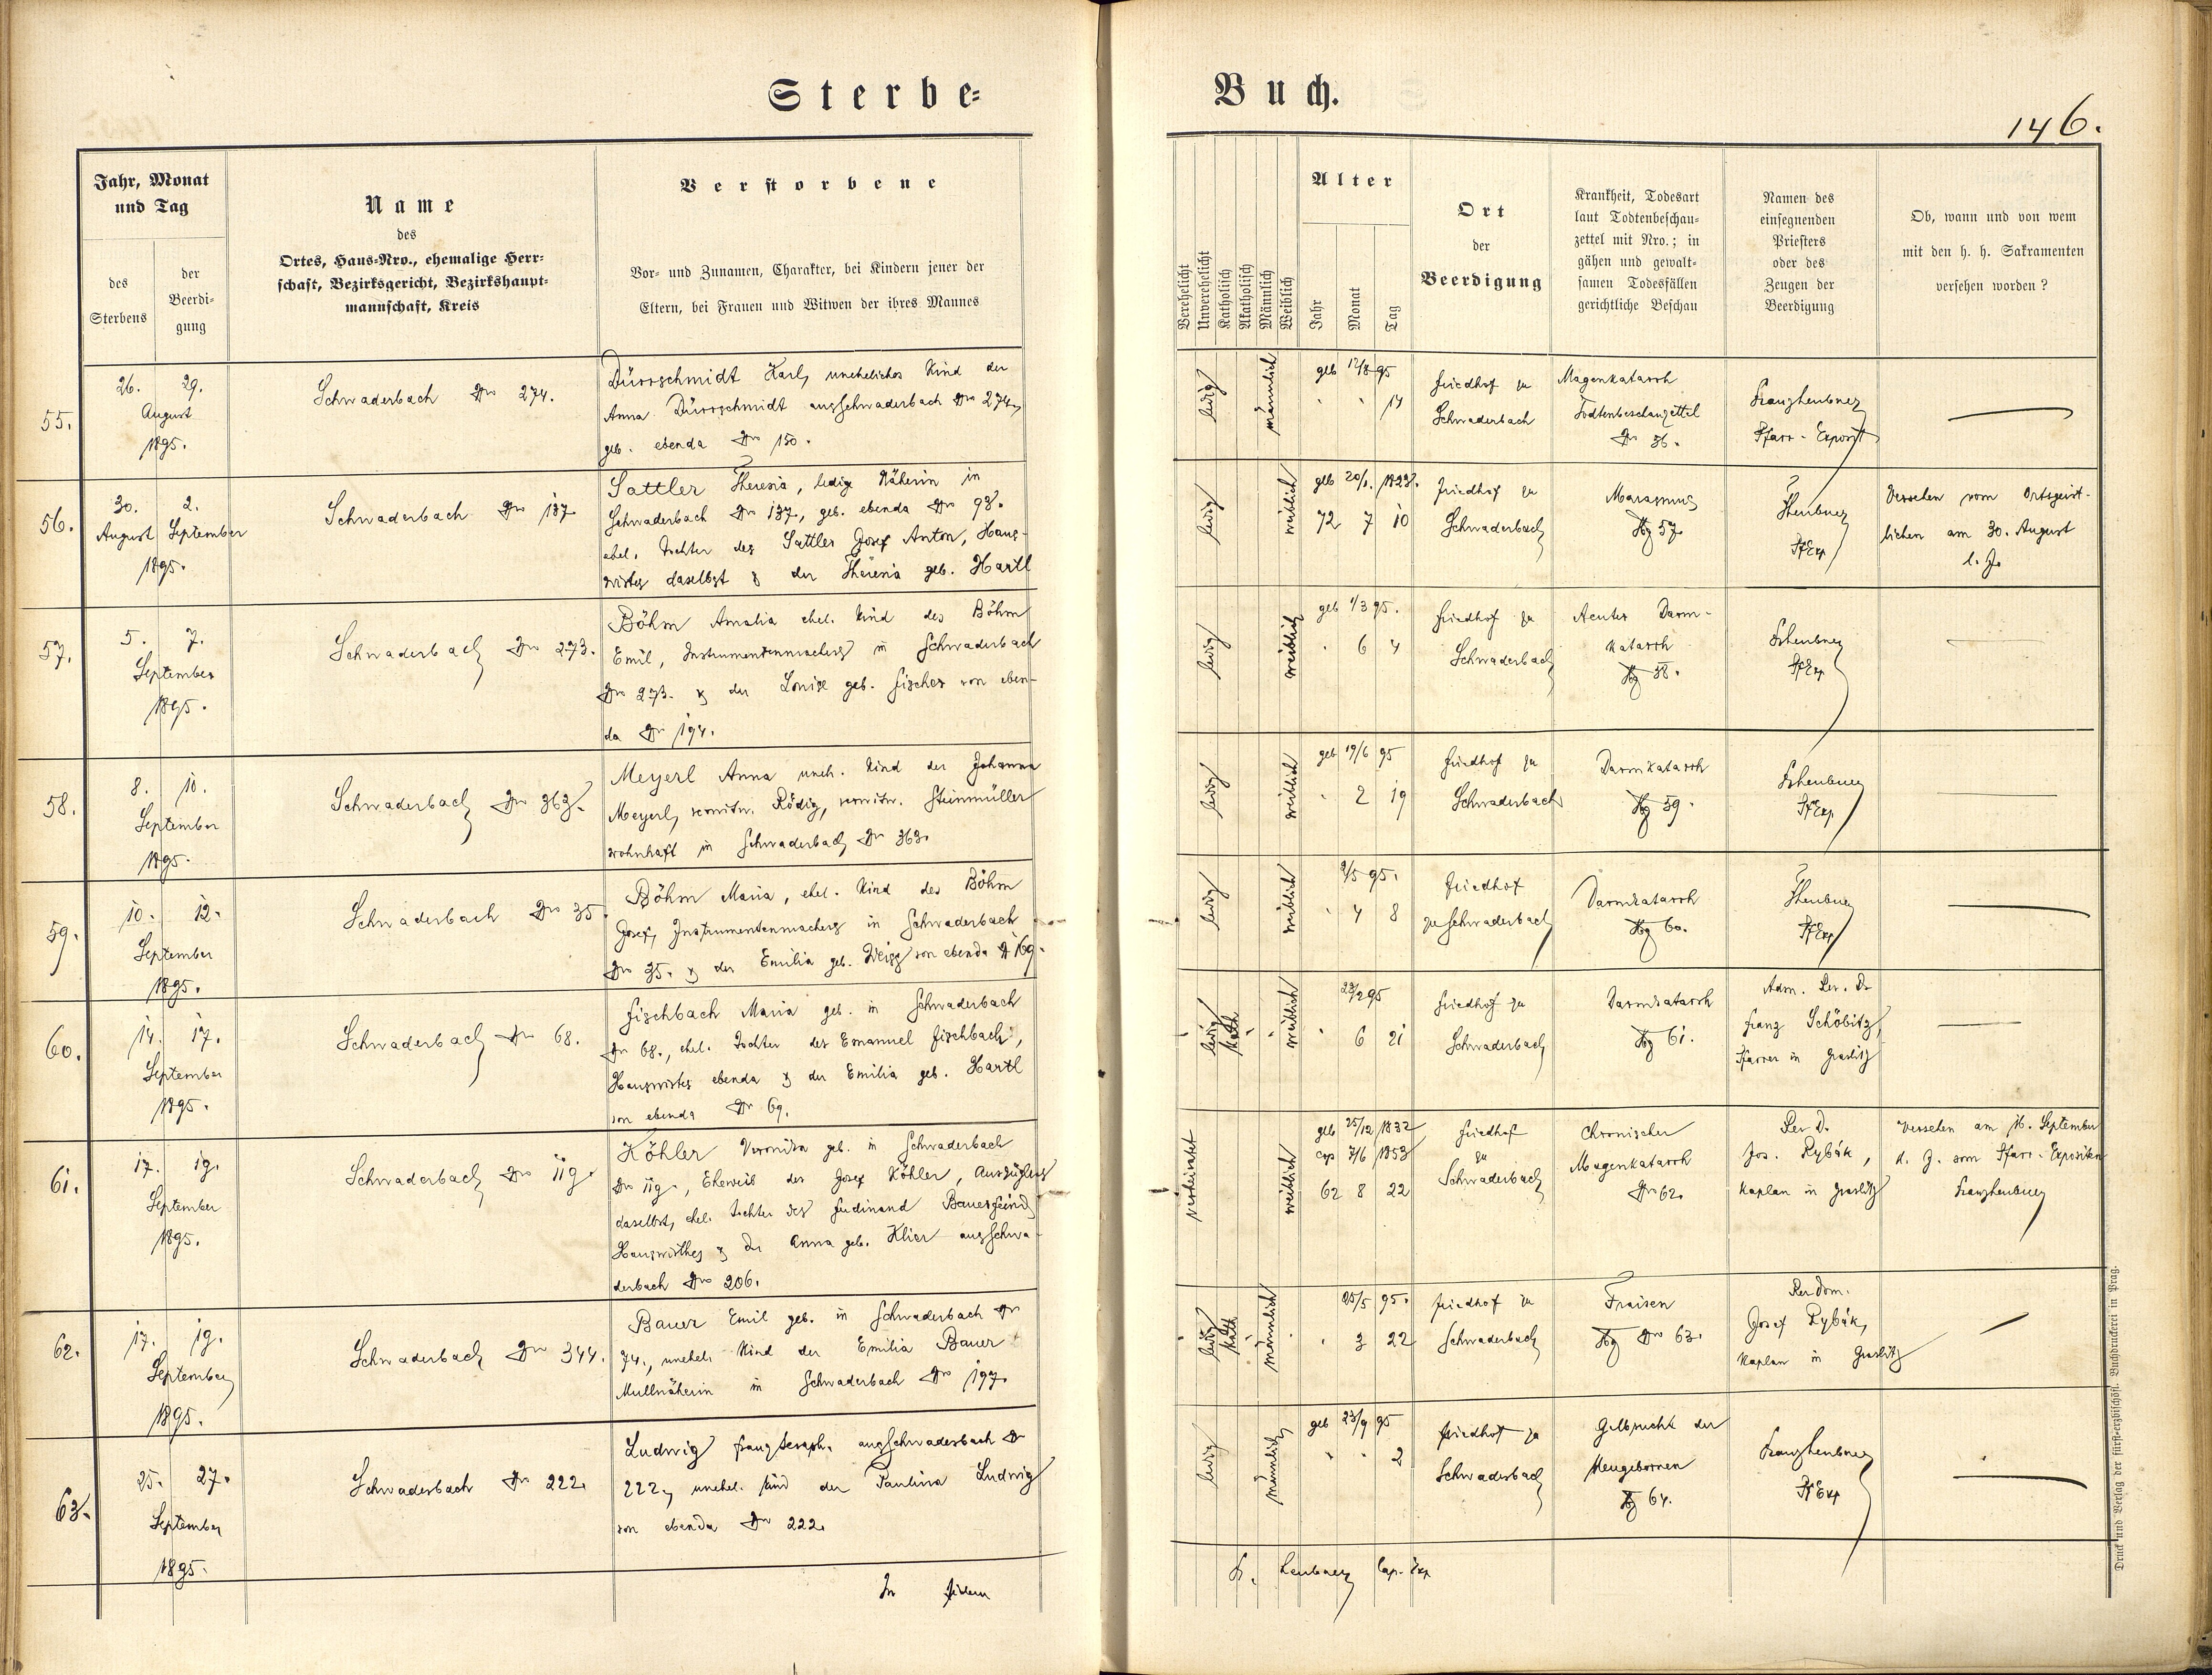 Sterbe-
Buch.
146.
Jahr, Monat
und Tag
des
Sterbens
der
Beerdi-
gung
Name
des
Ortes, Haus-Nro., ehemalige Herr-
schaft, Bezirksgericht, Bezirkshaupt-
mannschaft, Kreis
Verstorbene
Vor- und Zunamen, Charakter, bei Kindern jener der
Eltern, bei Frauen und Witwen der ihres Mannes
Verehelicht
Unverehelicht
Katholisch
Akatholisch
Männlich
Weiblich
Alter
Jahr
Monat
Tag
Ort
der
Beerdigung
Krankheit, Todesart
laut Todtenbeschau-
zettel mit Nro.; in
gähen und gewalt-
samen Todesfällen
gerichtliche Beschau
Namen des
einsegnenden
Priesters
oder des
Zeugen der
Beerdigung
Ob, wann und von wem
mit den h. h. Sakramenten
versehen worden?
55.
26. 29.
August
1895.
Schwaderbach Nro 274.
Dürrschmidt Karl, uneheliches Kind der
Anna Dürrschmidt aus Schwaderbach Nro 274,
geb. ebenda Nro 150.
ledig
männlich
geb 12/8 95
14
Friedhof zu
Schwaderbach
Magenkatarrh
Todtenbeschauzettel
Nr 56.
Franz Leubner
Pfarr-Exposit
56.
30. 2.
August September
1895.
Schwaderbach Nro 137
Sattler Theresia, ledige Näherin in
Schwaderbach Nro 137, geb. ebenda Nro 98.
ehel. Tochter des Sattler Josef Anton, Haus-
wirtes daselbst & der Theresia geb. Hartl
ledig
weiblich
geb 20/1. 1823.
72 7 10
Friedhof zu
Schwaderbach
Marasmus
57.
Leubner
PfExp
Versehen vom Ortsgeist-
lichen am 30. August
l. J.
57.
5. 7.
September
1895.
Schwaderbach Nro 273.
Böhm Amalia ehel. Kind des Böhm
Emil, Instrumentenmachers in Schwaderbach
Nro 273. & der Louise geb. Fischer von eben-
da Nr 194.
ledig
weiblich
geb 1/3 95.
6 4
Friedhof zu
Schwaderbach
Acuter Darm-
katarrh
58.
Leubner
PfExp
58.
8. 10.
September
1895.
Schwaderbach Nr 363.
Meyerl Anna uneh. Kind der Johanna
Meyerl, verwitw. Rödig, verwitw. Steinmüller
wohnhaft in Schwaderbach Nr 363.
ledig
weiblich
geb 19/6 95
2 19
Friedhof zu
Schwaderbach
Darmkatarrh
59.
Leubner
PfExp
59.
10. 12.
September
1895.
Schwaderbach Nro 35.
Böhm Maria, ehel. Kind des Böhm
Josef, Instrumentenmachers in Schwaderbach
Nro 35. & der Emilia geb. Weiss von ebenda N 169.
ledig
weiblich
2/5 95.
4 8
Friedhof
zu Schwaderbach
Darmkatarrh
60.
Leubner
PfExp
60.
14. 17.
September
1895.
Schwaderbach Nr 68.
Fischbach Maria geb. in Schwaderbach
Nr 68., ehel. Tochter des Emanuel Fischbach,
Hauswirtes ebenda & der Emilia geb. Hartl
von ebenda Nr 69.
ledig
kath
weiblich
23/2 95
6 21
Friedhof zu
Schwaderbach
Darmkatarrh
61.
Adm. Rev. D.
Franz Schöbitz,
Pfarrer in Graslitz
61.
17. 19.
September
1895.
Schwaderbach Nro 119
Köhler Veronika geb. in Schwaderbach
Nro 119, Eheweib des Josef Köhler, Auszüglers
daselbst, ehel. Tochter des Ferdinand Bauerfeind
Hauswirthes & der Anna geb. Klier aus Schwa-
derbach Nro 206.
verheiratet
weiblich
geb 25/12 1832
cop 7/6 1853
62 8 22
Friedhof
zu
Schwaderbach
Chronischer
Magenkatarrh
Nr 62.
Rev D.
Jos. Rybák,
Kaplan in Graslitz
Versehen am 16. September
d. J. vom Pfarr-Expositen
Franz Leubner
62.
17. 19.
September
1895.
Schwaderbach Nr 344.
Bauer Emil geb. in Schwaderbach Nr
74., unehel. Kind der Emilia Bauer
Mullnäherin in Schwaderbach Nro 197.
ledig
kath
männlich
25/5 95.
3 22
Friedhof zu
Schwaderbach
Fraisen
Nro 63.
Rev dom.
Josef Rybák,
Kaplan in Graslitz
63.
25. 27.
September
1895.
Schwaderbach Nr 222.
Ludwig Franz Seraph. aus Schwaderbach Nr
222., unehel. Kind der Paulina Ludwig
von ebenda Nro 222.
ledig
männlich
geb 23/9 95
2
Friedhof zu
Schwaderbach
Gelbsucht der
Neugebornen
64.
Franz Leubner
PfExp
In fidem
Fr. Leubner Cap. Exp
Druck und Verlag der fürst-erzbischöfl. Buchdruckerei in Prag.